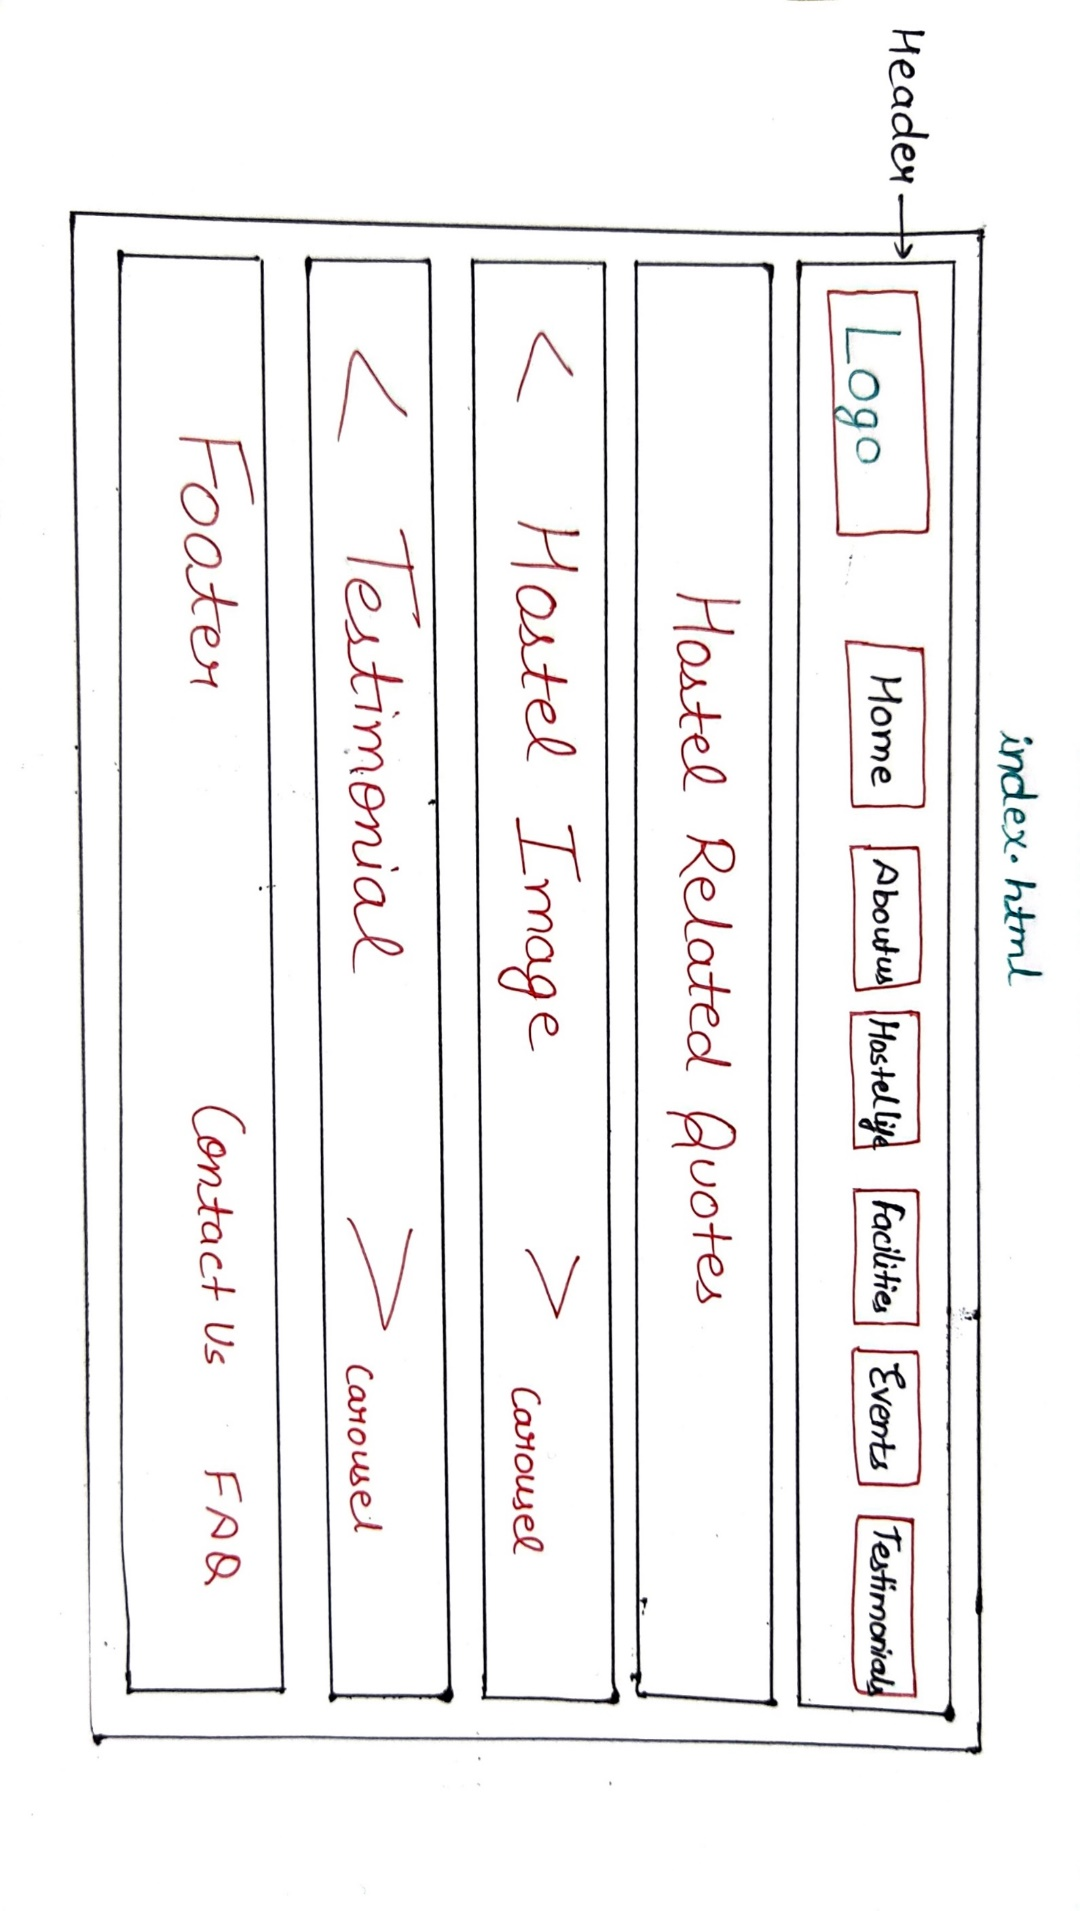 index.html
Header →
Logo Home Aboutus Hostel life Facilities Events Testimonials
Hostel Related Quotes
< Hostel Image > Carousel
< Testimonial > Carousel
Footer Contact Us FAQ